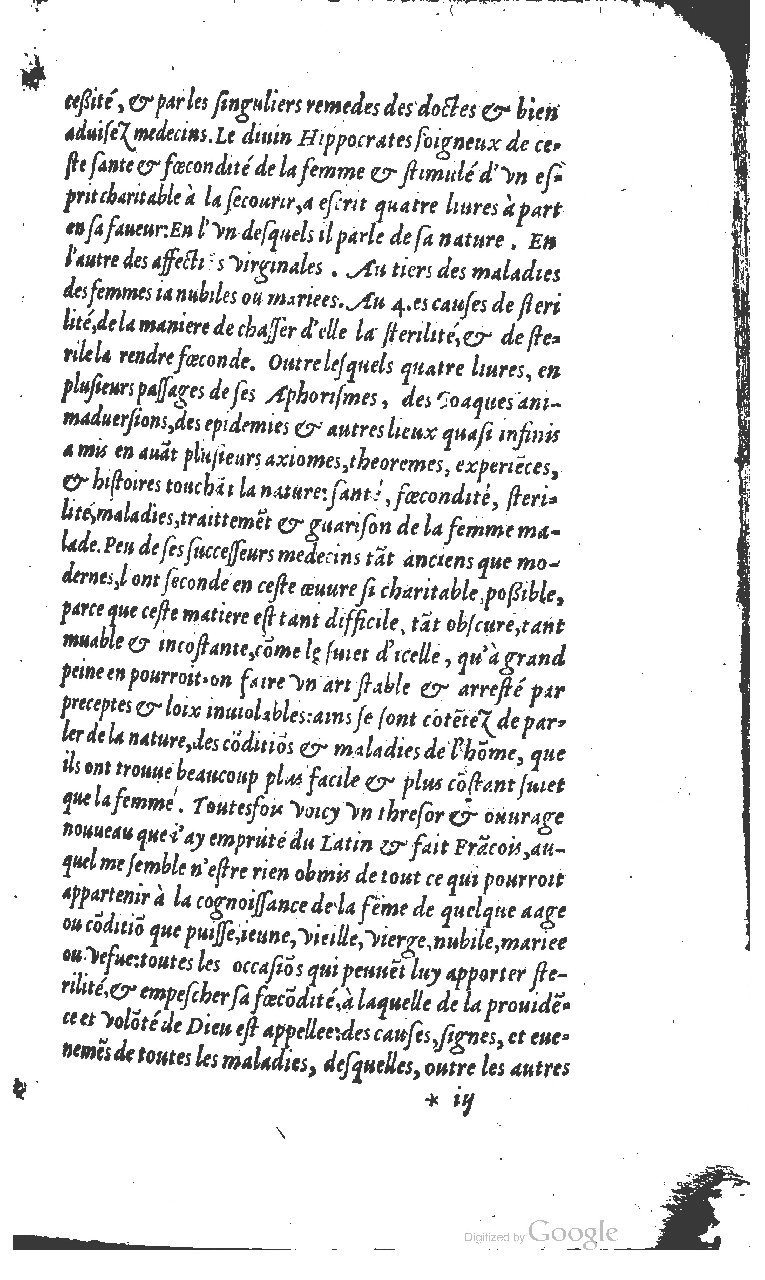 ceßité, & par les ſinguliers remedes des doctes & bien
aduiſez medecins. Le diuin Hippocrates ſoigneux de ce-
ſte ſante & fœcondité de la femme & ſtimulé d'vn eſ-
prit charitable à la ſecourir, a eſcrit quatre liures à part
en ſa faueur: En l'vn deſquels il parle de ſa nature. En
l'autre des virginales. Au tiers des maladies
des femmes ia nubiles ou mariees. Au 4. es cauſes de ſteri
lité, de la maniere de chaſſer d'elle la ſterilité, & de ſte-
rile la rendre fœconde. Outre leſquels quatre liures, en
pluſieurs paſſages de ſes Aphoriſmes, des Coaques ani-
maduerſions, des epidemies & autres lieux quaſi infinis
a mis en auãt pluſieurs axiomes, theoremes, experiẽces,
& hiſtoires touchãt la nature: ſanté, fœcondité, ſteri-
lité, maladies, traittemẽt & guariſon de la femme ma-
lade. Peu de ſes ſucceſſeurs medecins tãt anciens que mo-
dernes, l ont ſeconde en ceſte œuure ſi charitable poßible,
parce que ceſte matiere eſt tant difficile, tãt obſcure, tant
muable & incoſtante, cõme le ſuiet d'icelle, qu'à grand
peine en pourroit-on faire vn art ſtable & arreſté par
preceptes & loix inuiolables: ains ſe ſont cotẽtez de par-
ler de la nature, des cõditiõs & maladies de l'hõme, que
ils ont trouue beaucoup plus facile & plus cõſtant ſuiet
que la femme. Toutesfois voicy vn threſor & ouurage
nouueau que i'ay emprũté du Latin & fait Frãcois, au-
quel me ſemble n'eſtre rien obmis de tout ce qui pourroit
appartenir à la cognoiſſance de la fẽme de quelque aage
ou cõditiõ que puiſſe, ieune, vieille, vierge, nubile, mariee
ou vefue: toutes les occaſiõs qui peuuẽt luy apporter ſte-
rilité, & empeſcher ſa fœcõdité, à laquelle de la prouidẽ-
ce et volõté de Dieu eſt appellee: des cauſes, ſignes, et eue-
nemẽs de toutes les maladies, deſquelles, outre les autres
* iij
Digitized by Google